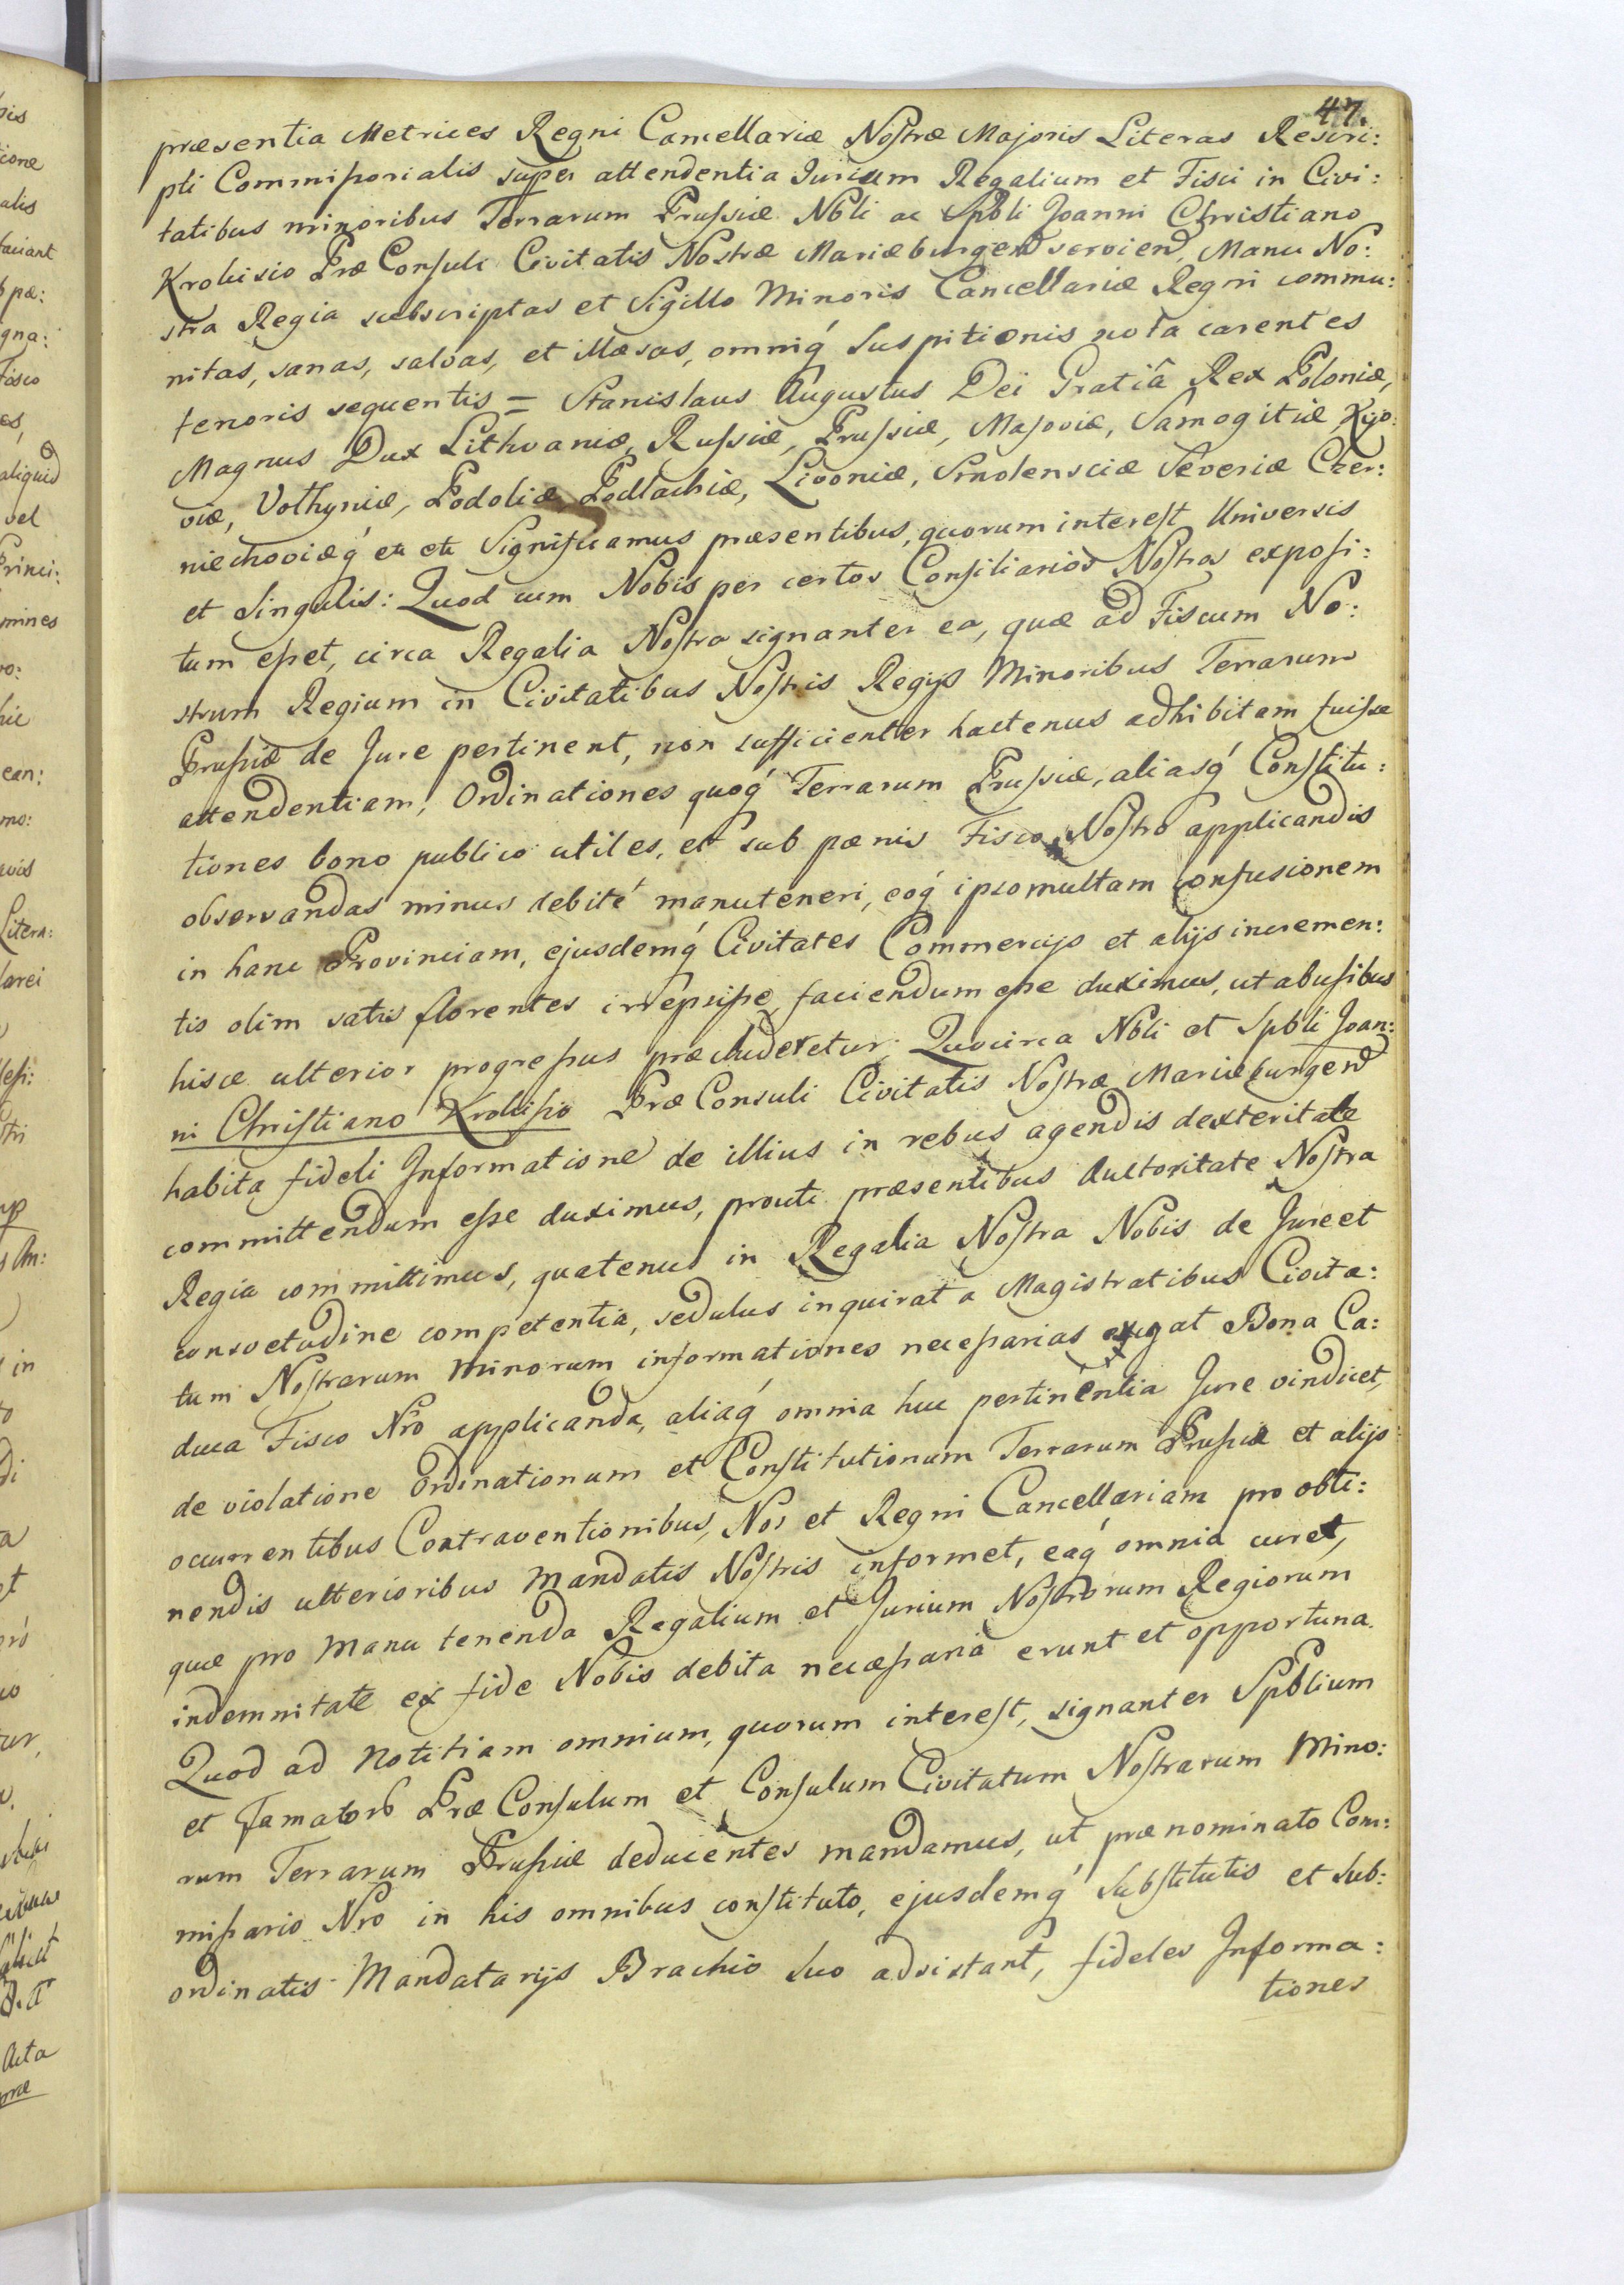 47.
præsentia Metrices Regni Cancellariæ Nostræ Majoris Literas Rescri:
pti Commissorialis super attendentia Jurium Regalium et Fisci in Civi:
tatibus minoribus Terrarum Prussiæ Nbli ac Spbli Joanni Christiano
Krohisio Præ Consuli Civitatis Nostræ Mariæburgens servien, Manu No:
stra Regia subscriptas et Sigillo Minoris Cancellariæ Regni commu:
nitas, sanas, salvas, et illæsas, omniq́ Suspitionis nota carentes
tenoris sequentis = Stanislaus Augustus Dei Gratiâ Rex Poloniæ,
Magnus Dux Lithvaniæ, Russiæ, Prussiæ, Masoviæ, Samogitiæ Kijo:
viæ, Volhyniæ, Podoliæ Podlachiæ, Livoniæ, Smolensciæ Severiæ Czer:
niechoviæq́ etc etc Significamus præsentibus, quorum interest Universis
et Singulis: Quod cum Nobis per certos Consiliarios Nostros exposi:
tum esset, circa Regalia Nostra signanter ea, quæ ad Fiscum No:
strum Regium in Civitatibus Nostris Regijs Minoribus Terrarum
Prussiæ de Jure pertinent, non sufficienter hactenus adhibitam fuisse
attendentiam, Ordinationes quoq́ Terrarum Prussiæ, aliasq́ Constitu:
tiones bono publico utiles, et sub pænis Fisco Nostro applicandis
observandas minus debité manuteneri, eoq́ ipso multam confusionem
in hanc Provinciam, ejusdemq́ Civitates Commercijs et alijs incremen:
tis olim satis florentes irrepsisse, faciendum esse duximus, ut abusibus
hisce ulterior progressus præcluderetur. Quocirca Nbli et Spbli Joan:
ni Christiano Krohisio Præ Consuli Civitatis Nostræ Mariæburgens
habita fideli Informatione de illius in rebus agendis dexteritate
committendum esse duximus, prouti præsentibus Auctoritate Nostra
Regia committimus, quatenus in Regalia Nostra Nobis de Jure et
consvetudine competentia, sedulus inquirat a Magistratibus Civita:
tum Nostrarum Minorum informationes necessarias exigat Bona Ca:
duca Fisco Nro applicanda, aliaq́ omnia huc pertinentia Jure vindicet,
de violatione Ordinationum et Constitutionum Terrarum Prussiæ et alijs
occurrentibus Contraventionibus, Nos et Regni Cancellariam pro obti:
nendis ulterioribus Mandatis Nostris informet, eaq́ omnia curet,
quæ pro manu tenenda Regalium et Jurium Nostrorum Regiorum
indemnitate ex fide Nobis debita necessaria erunt et opportuna.
Quod ad Notitiam omnium, quorum interest, signanter Spblium
et Famator Præ Consulum et Consulum Civitatum Nostrarum Mino:
rum Terrarum Prussiæ deducentes mandamus, ut prænominato Com:
missario Nro in his omnibus constituto, ejusdemq́ Substitutis et Sub:
ordinatis Mandatarijs Brachio Suo adsistant, fideles Informa:
tiones